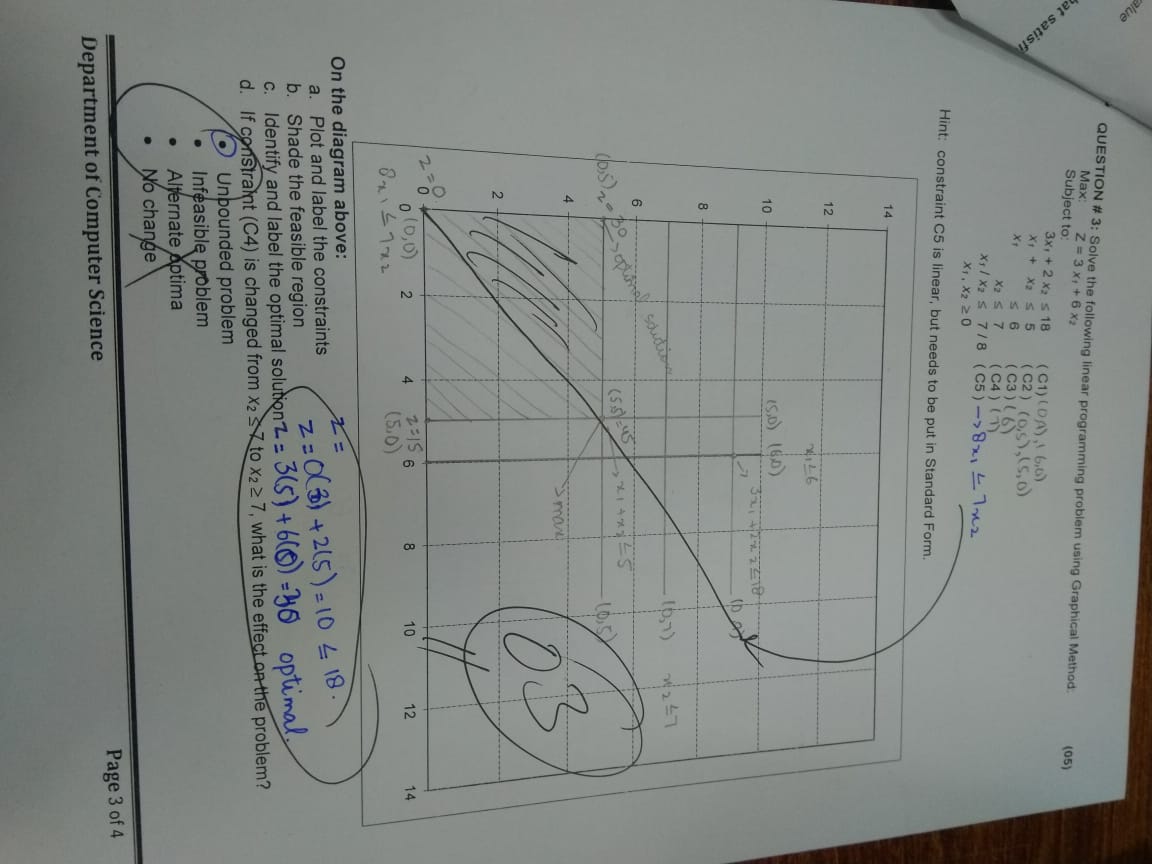 alue
hat satisfi
QUESTION # 3: Solve the following linear programming problem using Graphical Method: (05)
Max: Z = 3 x₁ + 6 x₂
Subject to:
3x₁ + 2 x₂ ≤ 18 (C1) (0,9), (6,0)
x₁ + x₂ ≤ 5 (C2) (0,5), (5,0)
x₁ ≤ 6 (C3) (6)
x₂ ≤ 7 (C4) (7)
x₁ / x₂ ≤ 7 / 8 (C5) → 8x₁ ≤ 7x₂
x₁, x₂ ≥ 0
Hint: constraint C5 is linear, but needs to be put in Standard Form.
14
12
10
8
6
4
2
0
(5,0) (6,0)
x₁ ≤ 6
3x₁ + 2x₂ ≤ 18
(0,7) x₂ ≤ 7
(0,5) z = 30 → optimal solution
(5,5) = 45
x₁ + x₂ ≤ 5
(0,5)
→ max
03
z = 0
0 2 4 6 8 10 12 14
(0,0)
z = 15
(5,0)
8x₁ ≤ 7x₂
On the diagram above:
a. Plot and label the constraints
b. Shade the feasible region
c. Identify and label the optimal solution
z =
z = 0(3) + 2(5) = 10 ≤ 18.
optimal.
d. If constraint (C4) is changed from x₂ ≤ 7 to x₂ ≥ 7, what is the effect on the problem?
• Unbounded problem
• Infeasible problem
• Alternate optima
• No change
Department of Computer Science Page 3 of 4